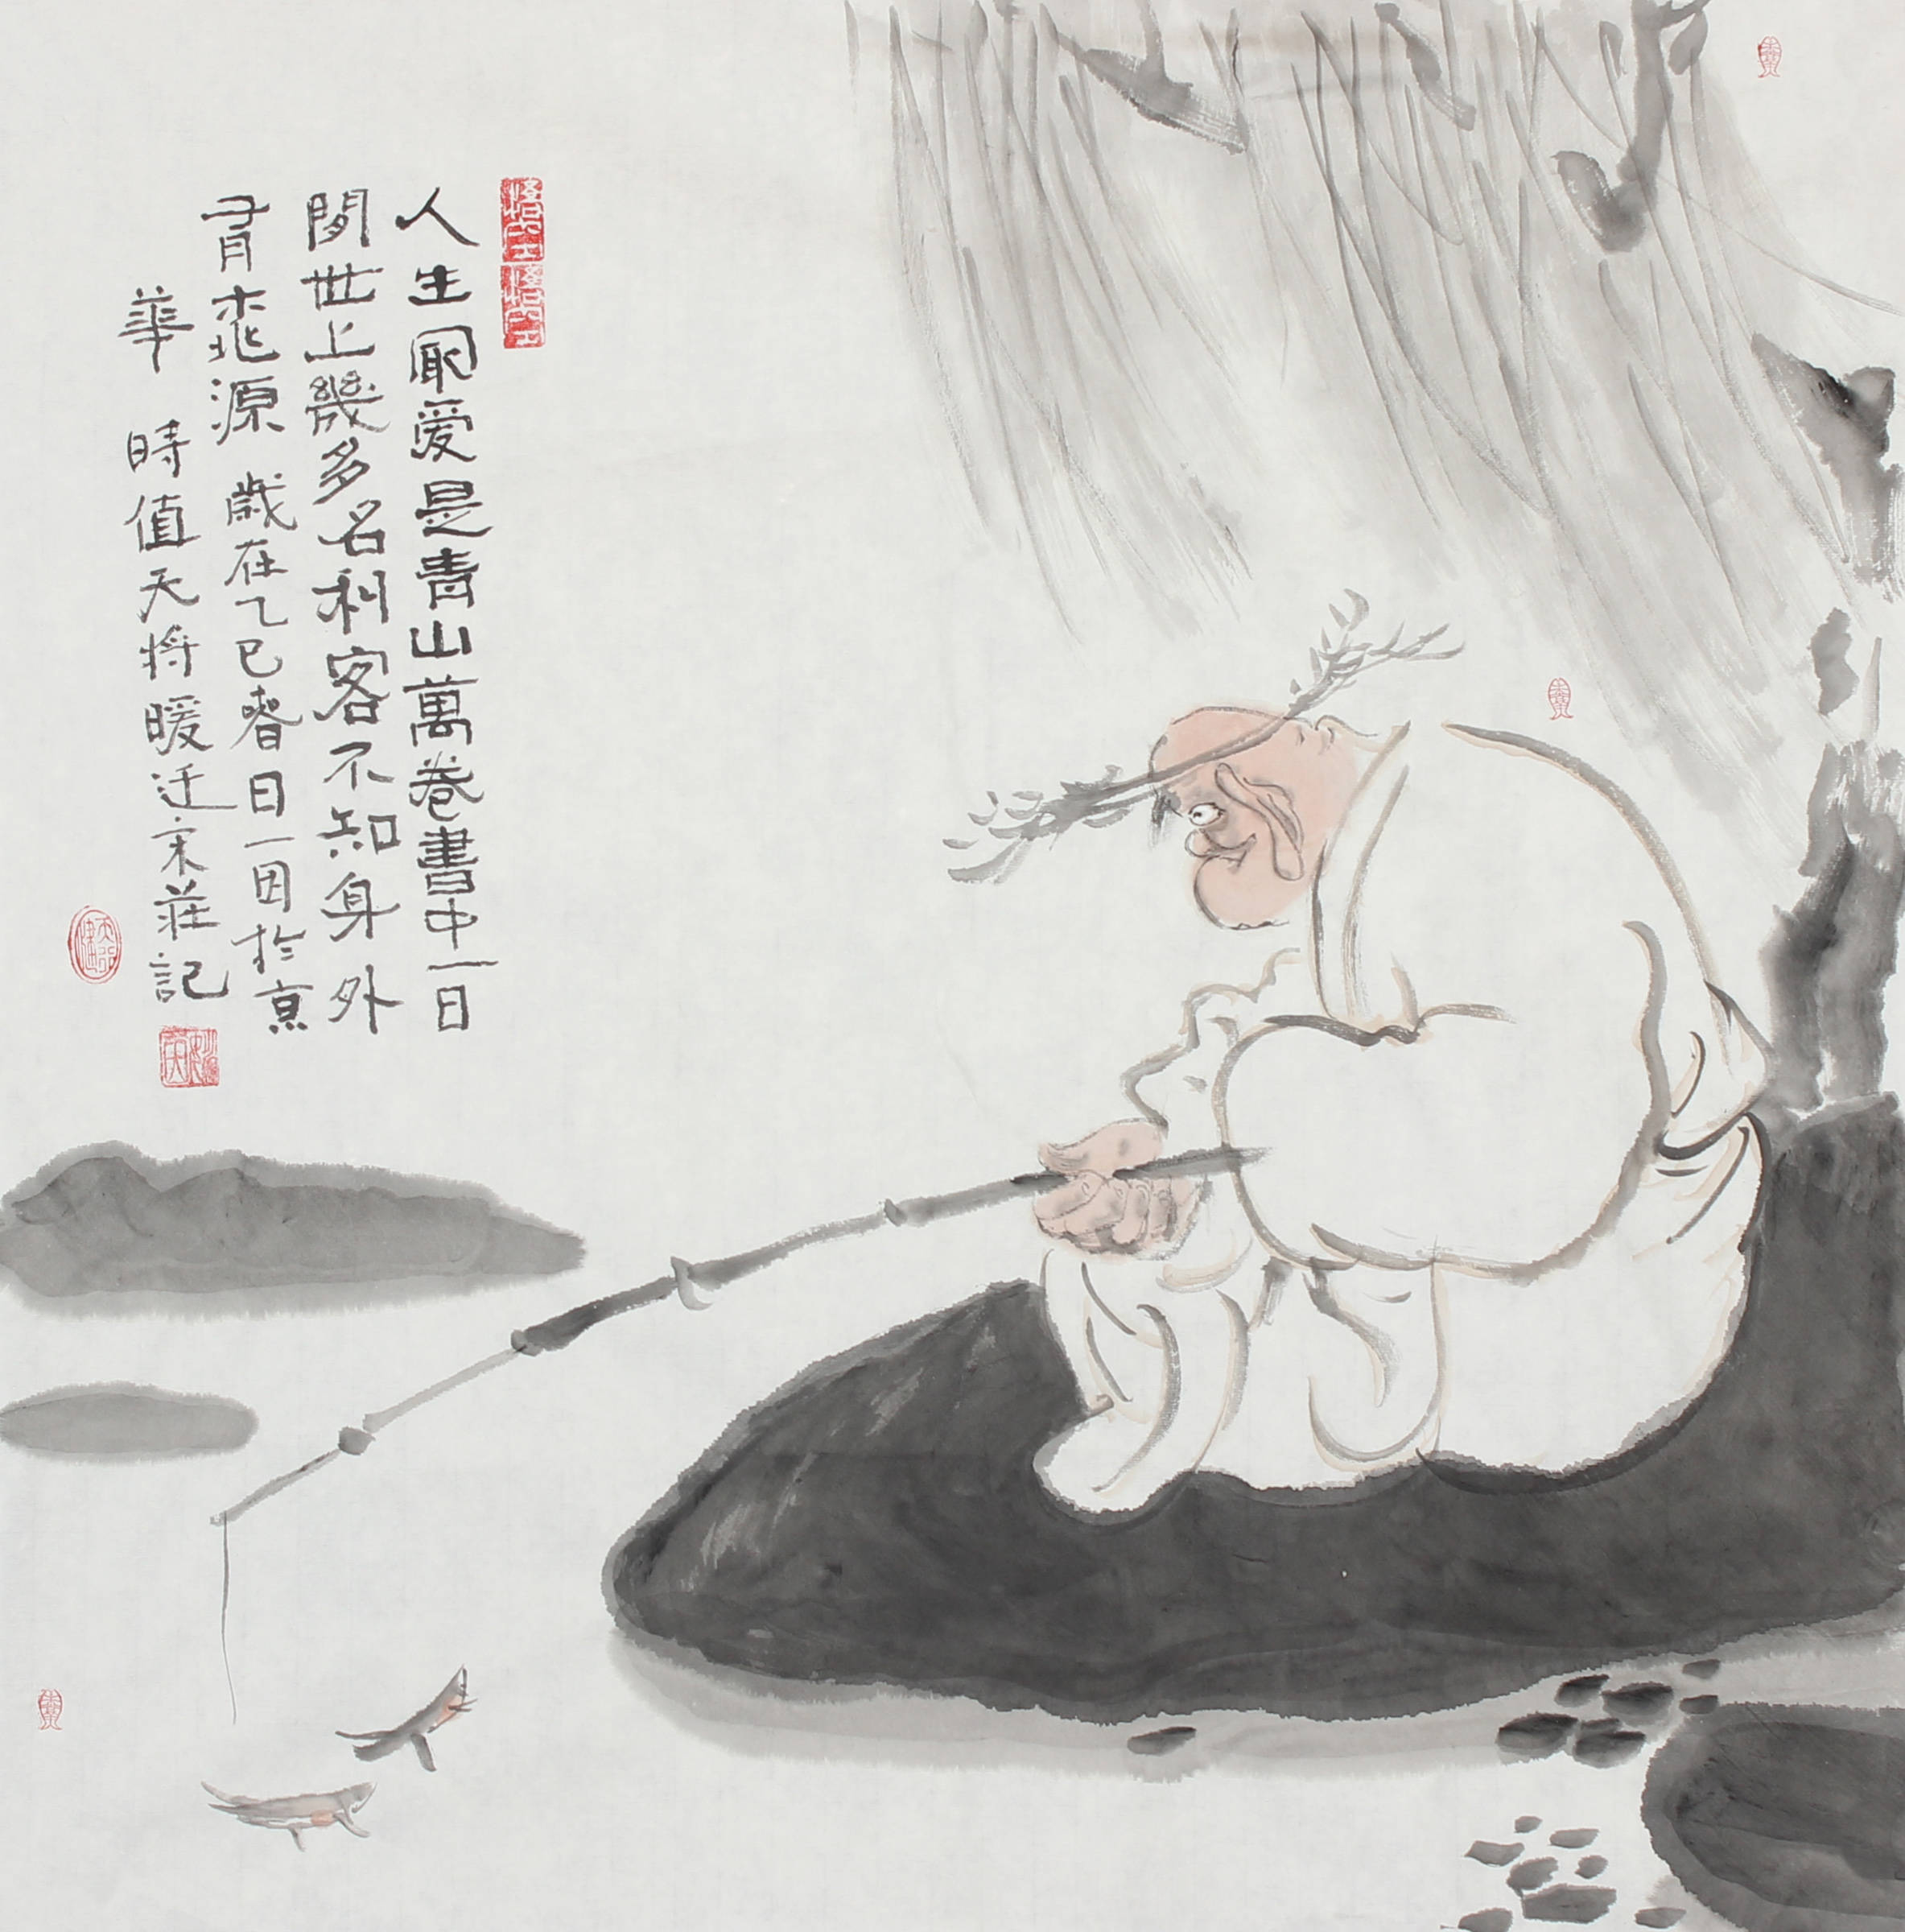 人生冣爱是青山萬卷書中一日
閒世上幾多名利客不知身外
有桃源 歲在乙巳春日一因於京
華 時值天将暖迁宋莊記